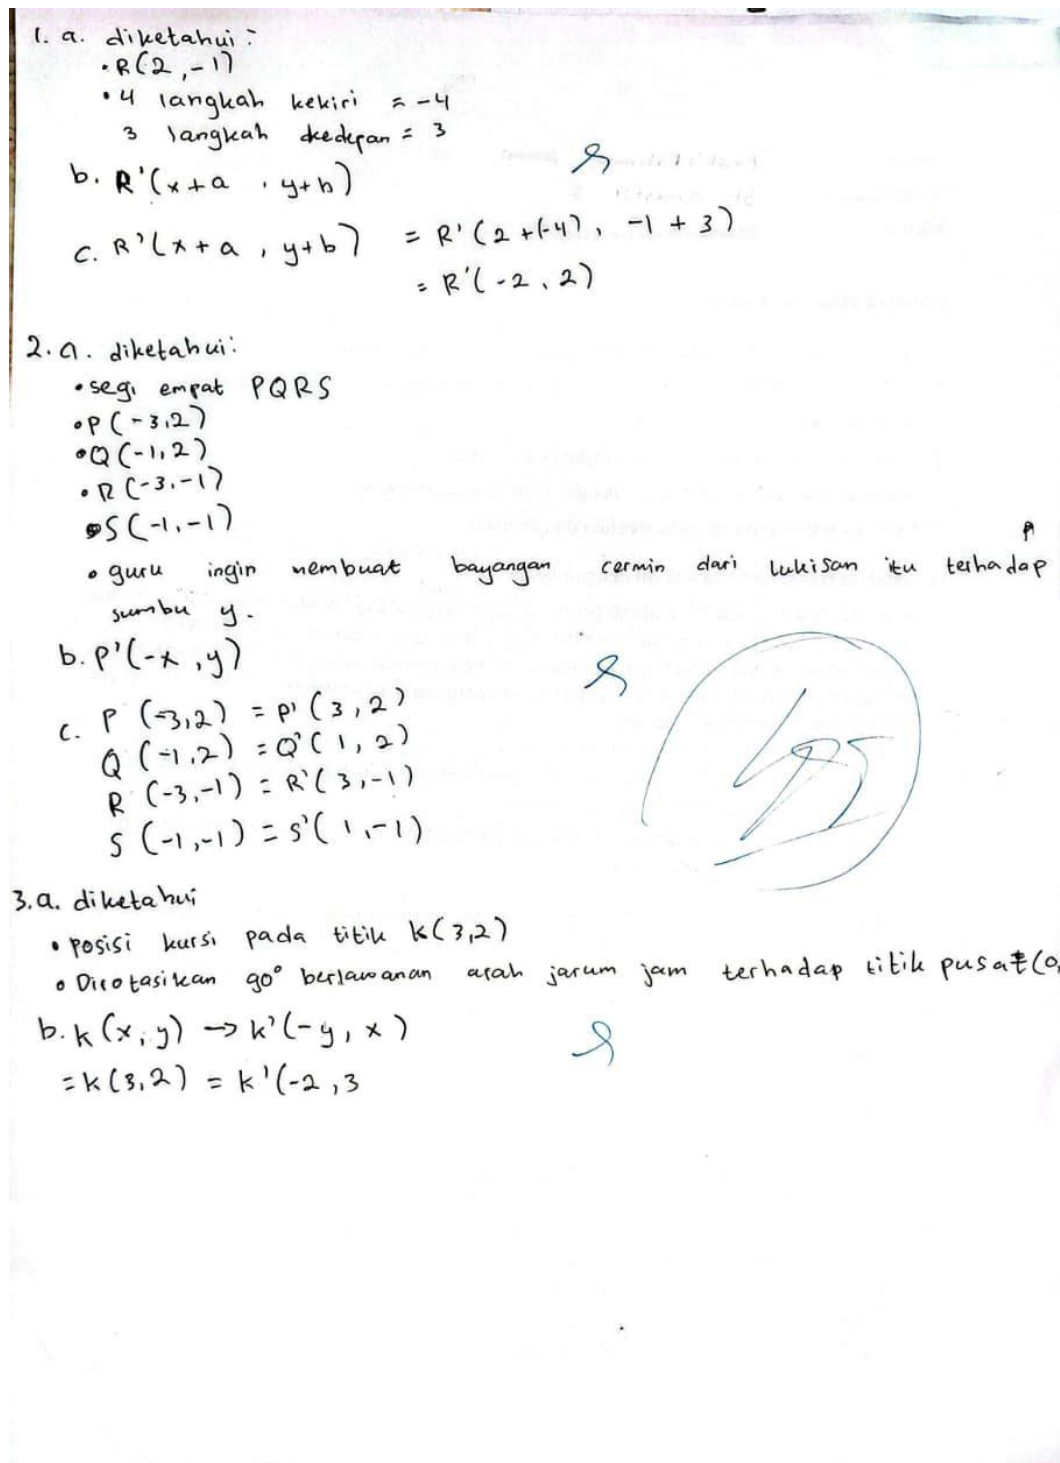 1. a. diketahui :
• R(2,-1)
• 4 langkah kekiri = -4
3 langkah kedepan = 3
b. R'(x+a , y+b)
c. R'(x+a , y+b) = R'(2+(-4), -1+3)
= R'(-2, 2)
2. a. diketahui:
• segi empat PQRS
• P(-3,2)
• Q(-1,2)
• R(-3,-1)
• S(-1,-1)
• guru ingin membuat bayangan cermin dari lukisan itu terhadap
sumbu y.
b. P'(-x,y)
c. P (-3,2) = P'(3,2)
Q (-1,2) = Q'(1,2)
R (-3,-1) = R'(3,-1)
S (-1,-1) = S'(1,-1)
3. a. diketahui
• posisi kursi pada titik k(3,2)
• Dirotasikan 90° berlawanan arah jarum jam terhadap titik pusat (0,
b. k(x,y) → k'(-y,x)
= k(3,2) = k'(-2,3